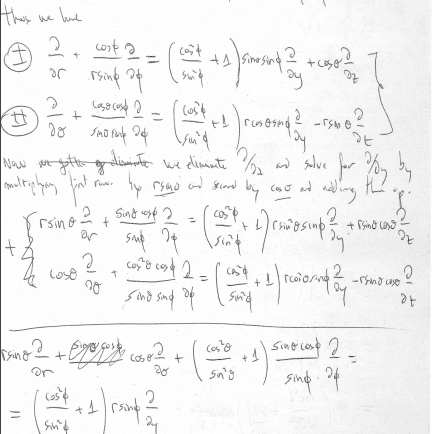 thus we have
(I) ∂/∂r + cosφ/(r sinφ) ∂/∂φ = (cos²φ/sin²φ + 1) sinθ sinφ ∂/∂y + cosθ ∂/∂z
(II) ∂/∂θ + cosθ cosφ/(sinθ sinφ) ∂/∂φ = (cos²φ/sin²φ + 1) r cosθ sinφ ∂/∂y - r sinθ ∂/∂z
Now we eliminate ∂/∂z and solve for ∂/∂y by
multiplying first row by r sinθ and second by cosθ and adding them up.
+ { r sinθ ∂/∂r + sinθ cosφ/sinφ ∂/∂φ = (cos²φ/sin²φ + 1) r sin²θ sinφ ∂/∂y + r sinθ cosθ ∂/∂z
cosθ ∂/∂θ + cos²θ cosφ/(sinθ sinφ) ∂/∂φ = (cos²φ/sin²φ + 1) r cos²θ sinφ ∂/∂y - r sinθ cosθ ∂/∂z
r sinθ ∂/∂r + cosθ ∂/∂θ + (cos²θ/sin²θ + 1) sinθ cosφ/sinφ ∂/∂φ =
= (cos²φ/sin²φ + 1) r sinφ ∂/∂y